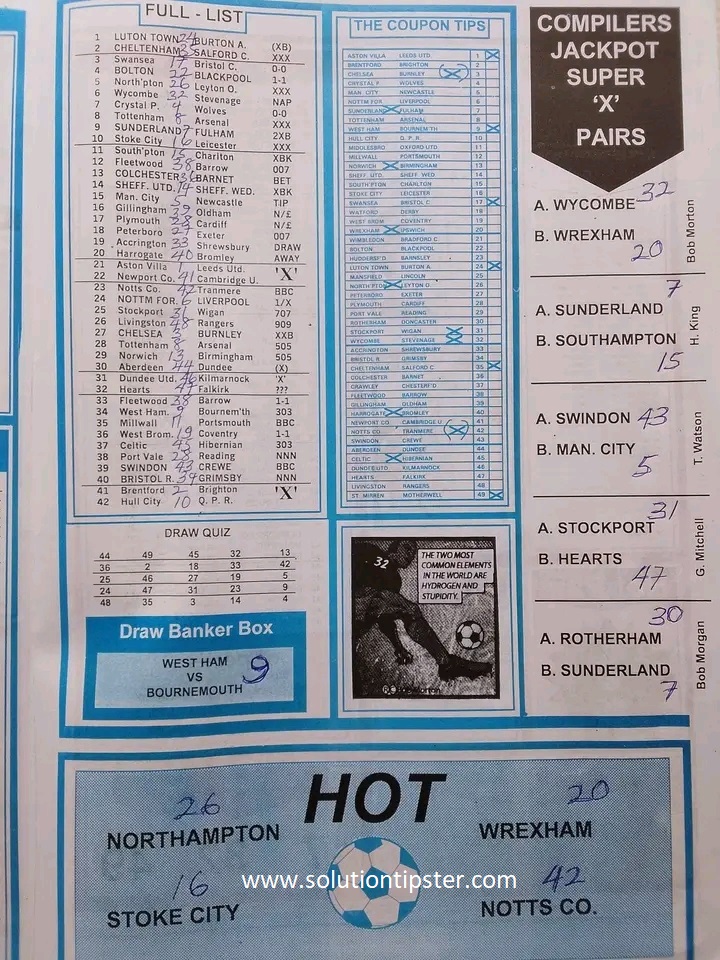 FULL - LIST
1 LUTON TOWN 24 BURTON A. (XB)
2 CHELTENHAM 35 SALFORD C. XXX
3 Swansea 17 Bristol C. 0-0
4 BOLTON 22 BLACKPOOL 1-1
5 North'pton 26 Leyton O. XXX
6 Wycombe 32 Stevenage NAP
7 Crystal P. 4 Wolves 0-0
8 Tottenham 8 Arsenal XXX
9 SUNDERLAND 7 FULHAM 2XB
10 Stoke City 16 Leicester XXX
11 South'pton 15 Charlton XBK
12 Fleetwood 38 Barrow 007
13 COLCHESTER 36 BARNET BET
14 SHEFF. UTD. 14 SHEFF. WED. XBK
15 Man. City 5 Newcastle TIP
16 Gillingham 39 Oldham N/£
17 Plymouth 28 Cardiff N/£
18 Peterboro 27 Exeter 007
19 Accrington 33 Shrewsbury DRAW
20 Harrogate 40 Bromley AWAY
21 Aston Villa 1 Leeds Utd. 'X'
22 Newport Co. 41 Cambridge U.
23 Notts Co. 42 Tranmere BBC
24 NOTTM FOR. 6 LIVERPOOL 1/X
25 Stockport 31 Wigan 707
26 Livingston 48 Rangers 909
27 CHELSEA 3 BURNLEY XXB
28 Tottenham 8 Arsenal 505
29 Norwich 13 Birmingham 505
30 Aberdeen 44 Dundee (X)
31 Dundee Utd. 46 Kilmarnock 'X'
32 Hearts 47 Falkirk ???
33 Fleetwood 38 Barrow 1-1
34 West Ham. 9 Bournem'th 303
35 Millwall 12 Portsmouth BBC
36 West Brom. 19 Coventry 1-1
37 Celtic 45 Hibernian 303
38 Port Vale 29 Reading NNN
39 SWINDON 43 CREWE BBC
40 BRISTOL R. 34 GRIMSBY NNN
41 Brentford 2 Brighton 'X'
42 Hull City 10 Q. P. R.
DRAW QUIZ
44 49 45 32 13
36 2 18 33 42
25 46 27 19 5
24 47 31 23 9
48 35 3 14 4
Draw Banker Box
WEST HAM
VS
BOURNEMOUTH 9
THE COUPON TIPS
ASTON VILLA LEEDS UTD 1
BRENTFORD BRIGHTON 2
CHELSEA BURNLEY 3
CRYSTAL P. WOLVES 4
MAN. CITY NEWCASTLE 5
NOTTM FOR. LIVERPOOL 6
SUNDERLAND FULHAM 7
TOTTENHAM ARSENAL 8
WEST HAM BOURNEM'TH 9
HULL CITY Q. P. R. 10
MIDDLESBRO OXFORD UTD. 11
MILLWALL PORTSMOUTH 12
NORWICH BIRMINGHAM 13
SHEFF. UTD. SHEFF. WED 14
SOUTH'PTON CHARLTON 15
STOKE CITY LEICESTER 16
SWANSEA BRISTOL C. 17
WATFORD DERBY 18
WEST BROM. COVENTRY 19
WREXHAM IPSWICH 20
WIMBLEDON BRADFORD C. 21
BOLTON BLACKPOOL 22
HUDDERSF'D BARNSLEY 23
LUTON TOWN BURTON A. 24
MANSFIELD LINCOLN 25
NORTH'PTON LEYTON O. 26
PETERBORO EXETER 27
PLYMOUTH CARDIFF 28
PORT VALE READING 29
ROTHERHAM DONCASTER 30
STOCKPORT WIGAN 31
WYCOMBE STEVENAGE 32
ACCRINGTON SHREWSBURY 33
BRISTOL R. GRIMSBY 34
CHELTENHAM SALFORD C. 35
COLCHESTER BARNET 36
CRAWLEY CHESTERF'D 37
FLEETWOOD BARROW 38
GILLINGHAM OLDHAM 39
HARROGATE BROMLEY 40
NEWPORT CO. CAMBRIDGE U. 41
NOTTS CO. TRANMERE 42
SWINDON CREWE 43
ABERDEEN DUNDEE 44
CELTIC HIBERNIAN 45
DUNDEE UTD. KILMARNOCK 46
HEARTS FALKIRK 47
LIVINGSTON RANGERS 48
ST. MIRREN MOTHERWELL 49
32
THE TWO MOST
COMMON ELEMENTS
IN THE WORLD ARE
HYDROGEN AND
STUPIDITY.
Bob Morton
COMPILERS
JACKPOT
SUPER
'X'
PAIRS
A. WYCOMBE 32
B. WREXHAM
20
Bob Morton
7
A. SUNDERLAND
B. SOUTHAMPTON
15
H. King
A. SWINDON 43
B. MAN. CITY
5
T. Watson
31
A. STOCKPORT
B. HEARTS
47
G. Mitchell
30
A. ROTHERHAM
B. SUNDERLAND
7
Bob Morgan
HOT
26
NORTHAMPTON
20
WREXHAM
16
STOKE CITY
42
NOTTS CO.
www.solutiontipster.com